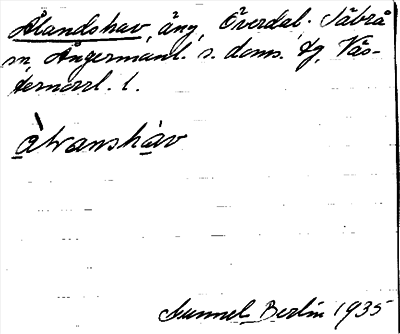 Ålandshav, äng, Överdal. Säbrå
sn, Ångermanl. s. doms. tg, Väs-
ternorrl. l.
àtranshàv
Gunnel Berlin 1935